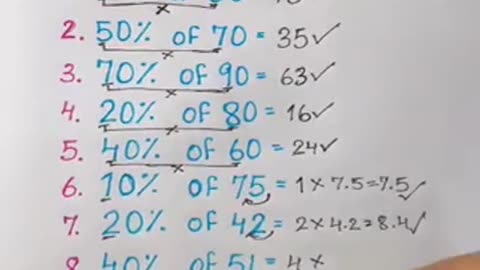 2. 50% of 70 = 35✓
3. 70% of 90 = 63✓
4. 20% of 80 = 16✓
5. 40% of 60 = 24✓
6. 10% of 75 = 1 × 7.5 = 7.5✓
7. 20% of 42 = 2 × 4.2 = 8.4✓
8. 40% of 51 = 4 ×